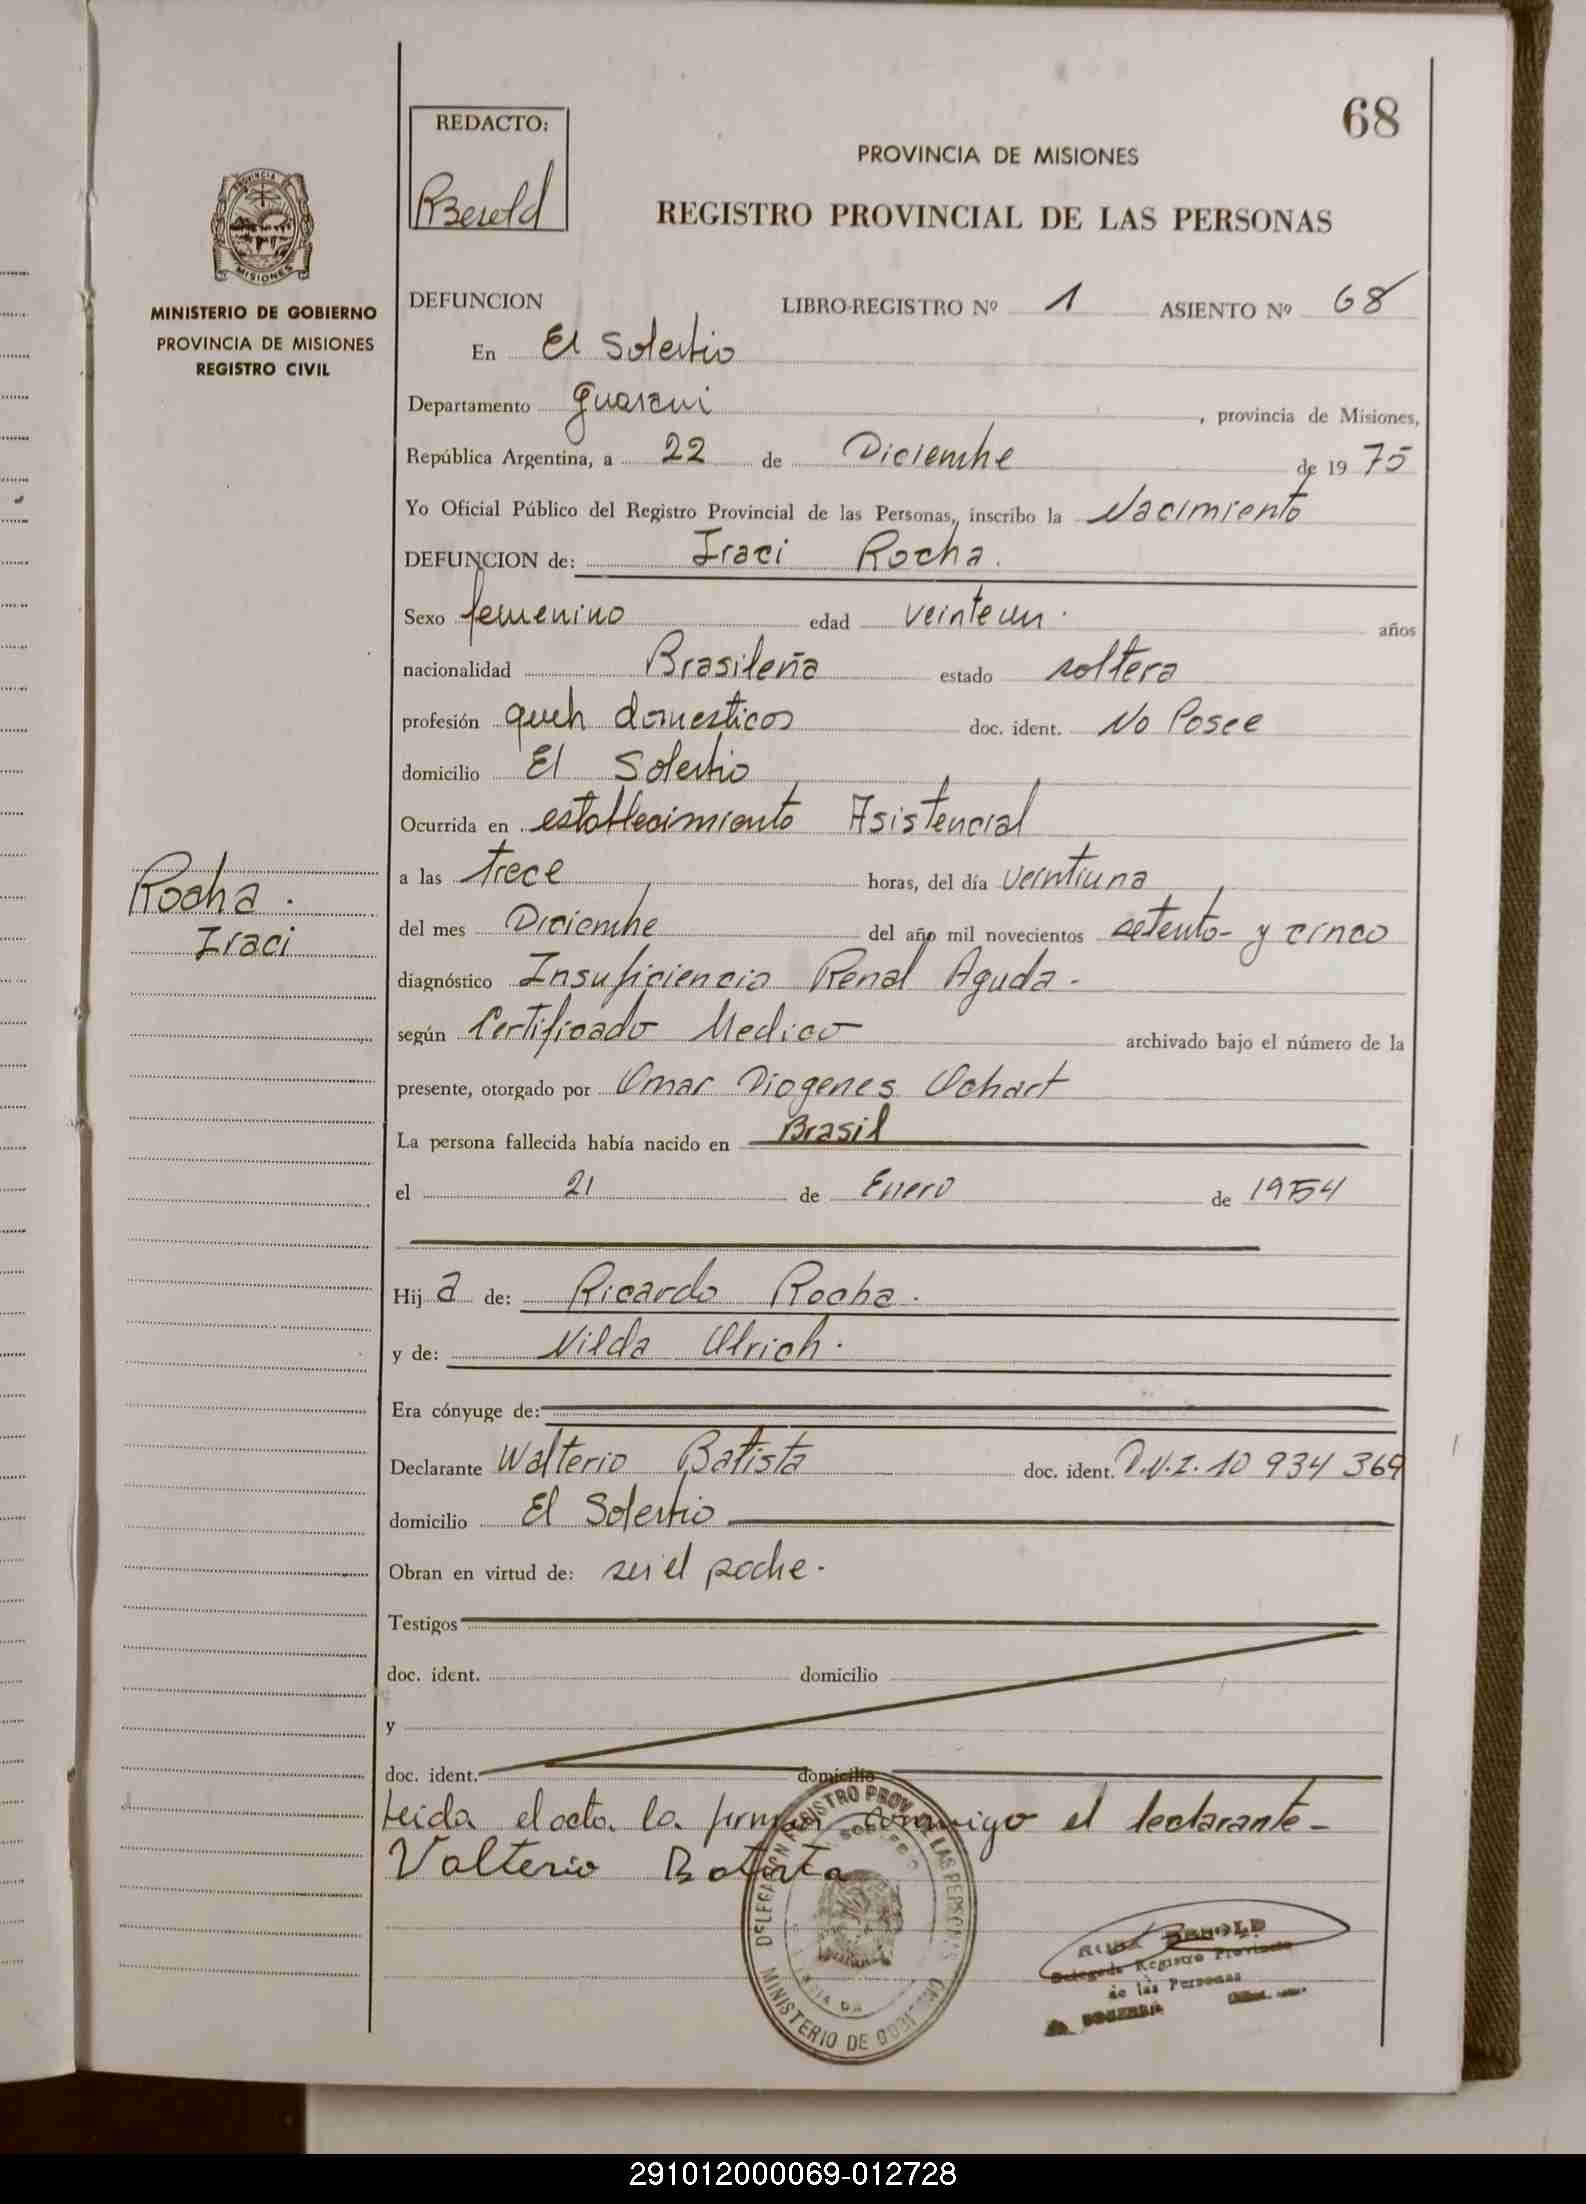 68
REDACTO:
RBerold
PROVINCIA DE MISIONES
REGISTRO PROVINCIAL DE LAS PERSONAS
PROVINCIA
MISIONES
MINISTERIO DE GOBIERNO
PROVINCIA DE MISIONES
REGISTRO CIVIL
DEFUNCION LIBRO-REGISTRO Nº 1 ASIENTO Nº 68
En El Soberbio
Departamento Guarani, provincia de Misiones,
República Argentina, a 22 de Diciembre de 1975
Yo Oficial Público del Registro Provincial de las Personas, inscribo la Nacimiento
DEFUNCION de: Iraci Rocha.
Sexo femenino edad veinteun. años
nacionalidad Brasileña estado soltera
profesión queh domesticos doc. ident. No Posee
domicilio El Soberbio
Ocurrida en establecimiento Asistencial
a las trece horas, del día veintiuna
Rocha.
Iraci
del mes Diciembre del año mil novecientos setenta y cinco
diagnóstico Insuficiencia Renal Aguda-
según Certificado Medico archivado bajo el número de la
presente, otorgado por Omar Diogenes Ochart
La persona fallecida había nacido en Brasil
el 21 de Enero de 1954
Hij a de: Ricardo Rocha.
y de: Nilda Ulrich.
Era cónyuge de:
Declarante Walterio Batista doc. ident. D.N.I. 10 934 369
domicilio El Soberbio
Obran en virtud de: ser el padre.
Testigos
doc. ident. domicilio
y
doc. ident. domicilio
Leida el acta la firma conmigo el declarante-
Valterio Batista
DELEGACION REGISTRO PROV. DE LAS PERSONAS
MINISTERIO DE GOBIERNO
Delegada Registro Provincial
de las Personas
291012000069-012728